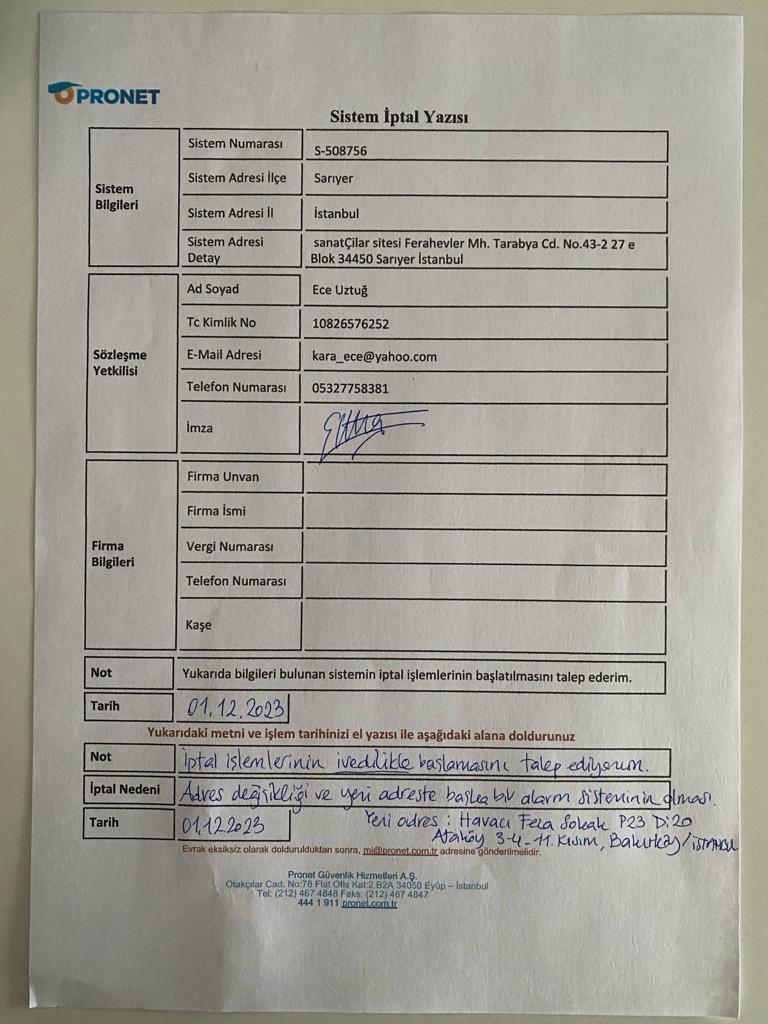 PRONET
Sistem İptal Yazısı
Sistem Bilgileri
Sistem Numarası S-508756
Sistem Adresi İlçe Sarıyer
Sistem Adresi İl İstanbul
Sistem Adresi Detay sanatÇilar sitesi Ferahevler Mh. Tarabya Cd. No.43-2 27 e
Blok 34450 Sarıyer İstanbul
Sözleşme Yetkilisi
Ad Soyad Ece Uztuğ
Tc Kimlik No 10826576252
E-Mail Adresi kara_ece@yahoo.com
Telefon Numarası 05327758381
İmza
Firma Bilgileri
Firma Unvan
Firma İsmi
Vergi Numarası
Telefon Numarası
Kaşe
Not Yukarıda bilgileri bulunan sistemin iptal işlemlerinin başlatılmasını talep ederim.
Tarih 01.12.2023
Yukarıdaki metni ve işlem tarihinizi el yazısı ile aşağıdaki alana doldurunuz
Not İptal işlemlerinin ivedilikle başlamasını talep ediyorum.
İptal Nedeni Adres değişikliği ve yeni adreste başka bir alarm sisteminin olması.
Tarih 01.12.2023
Yeni adres : Havacı Sokak P23 D:20
Ataköy 3-4-11. Kısım, Bakırköy/İSTANBUL
Evrak eksiksiz olarak doldurulduktan sonra, mi@pronet.com.tr adresine gönderilmelidir.
Pronet Güvenlik Hizmetleri A.Ş.
Otakçılar Cad. No:78 Flat Ofis Kat:2 B2A 34050 Eyüp – İstanbul
Tel: (212) 467 4848 Faks: (212) 467 4847
444 1 911 pronet.com.tr